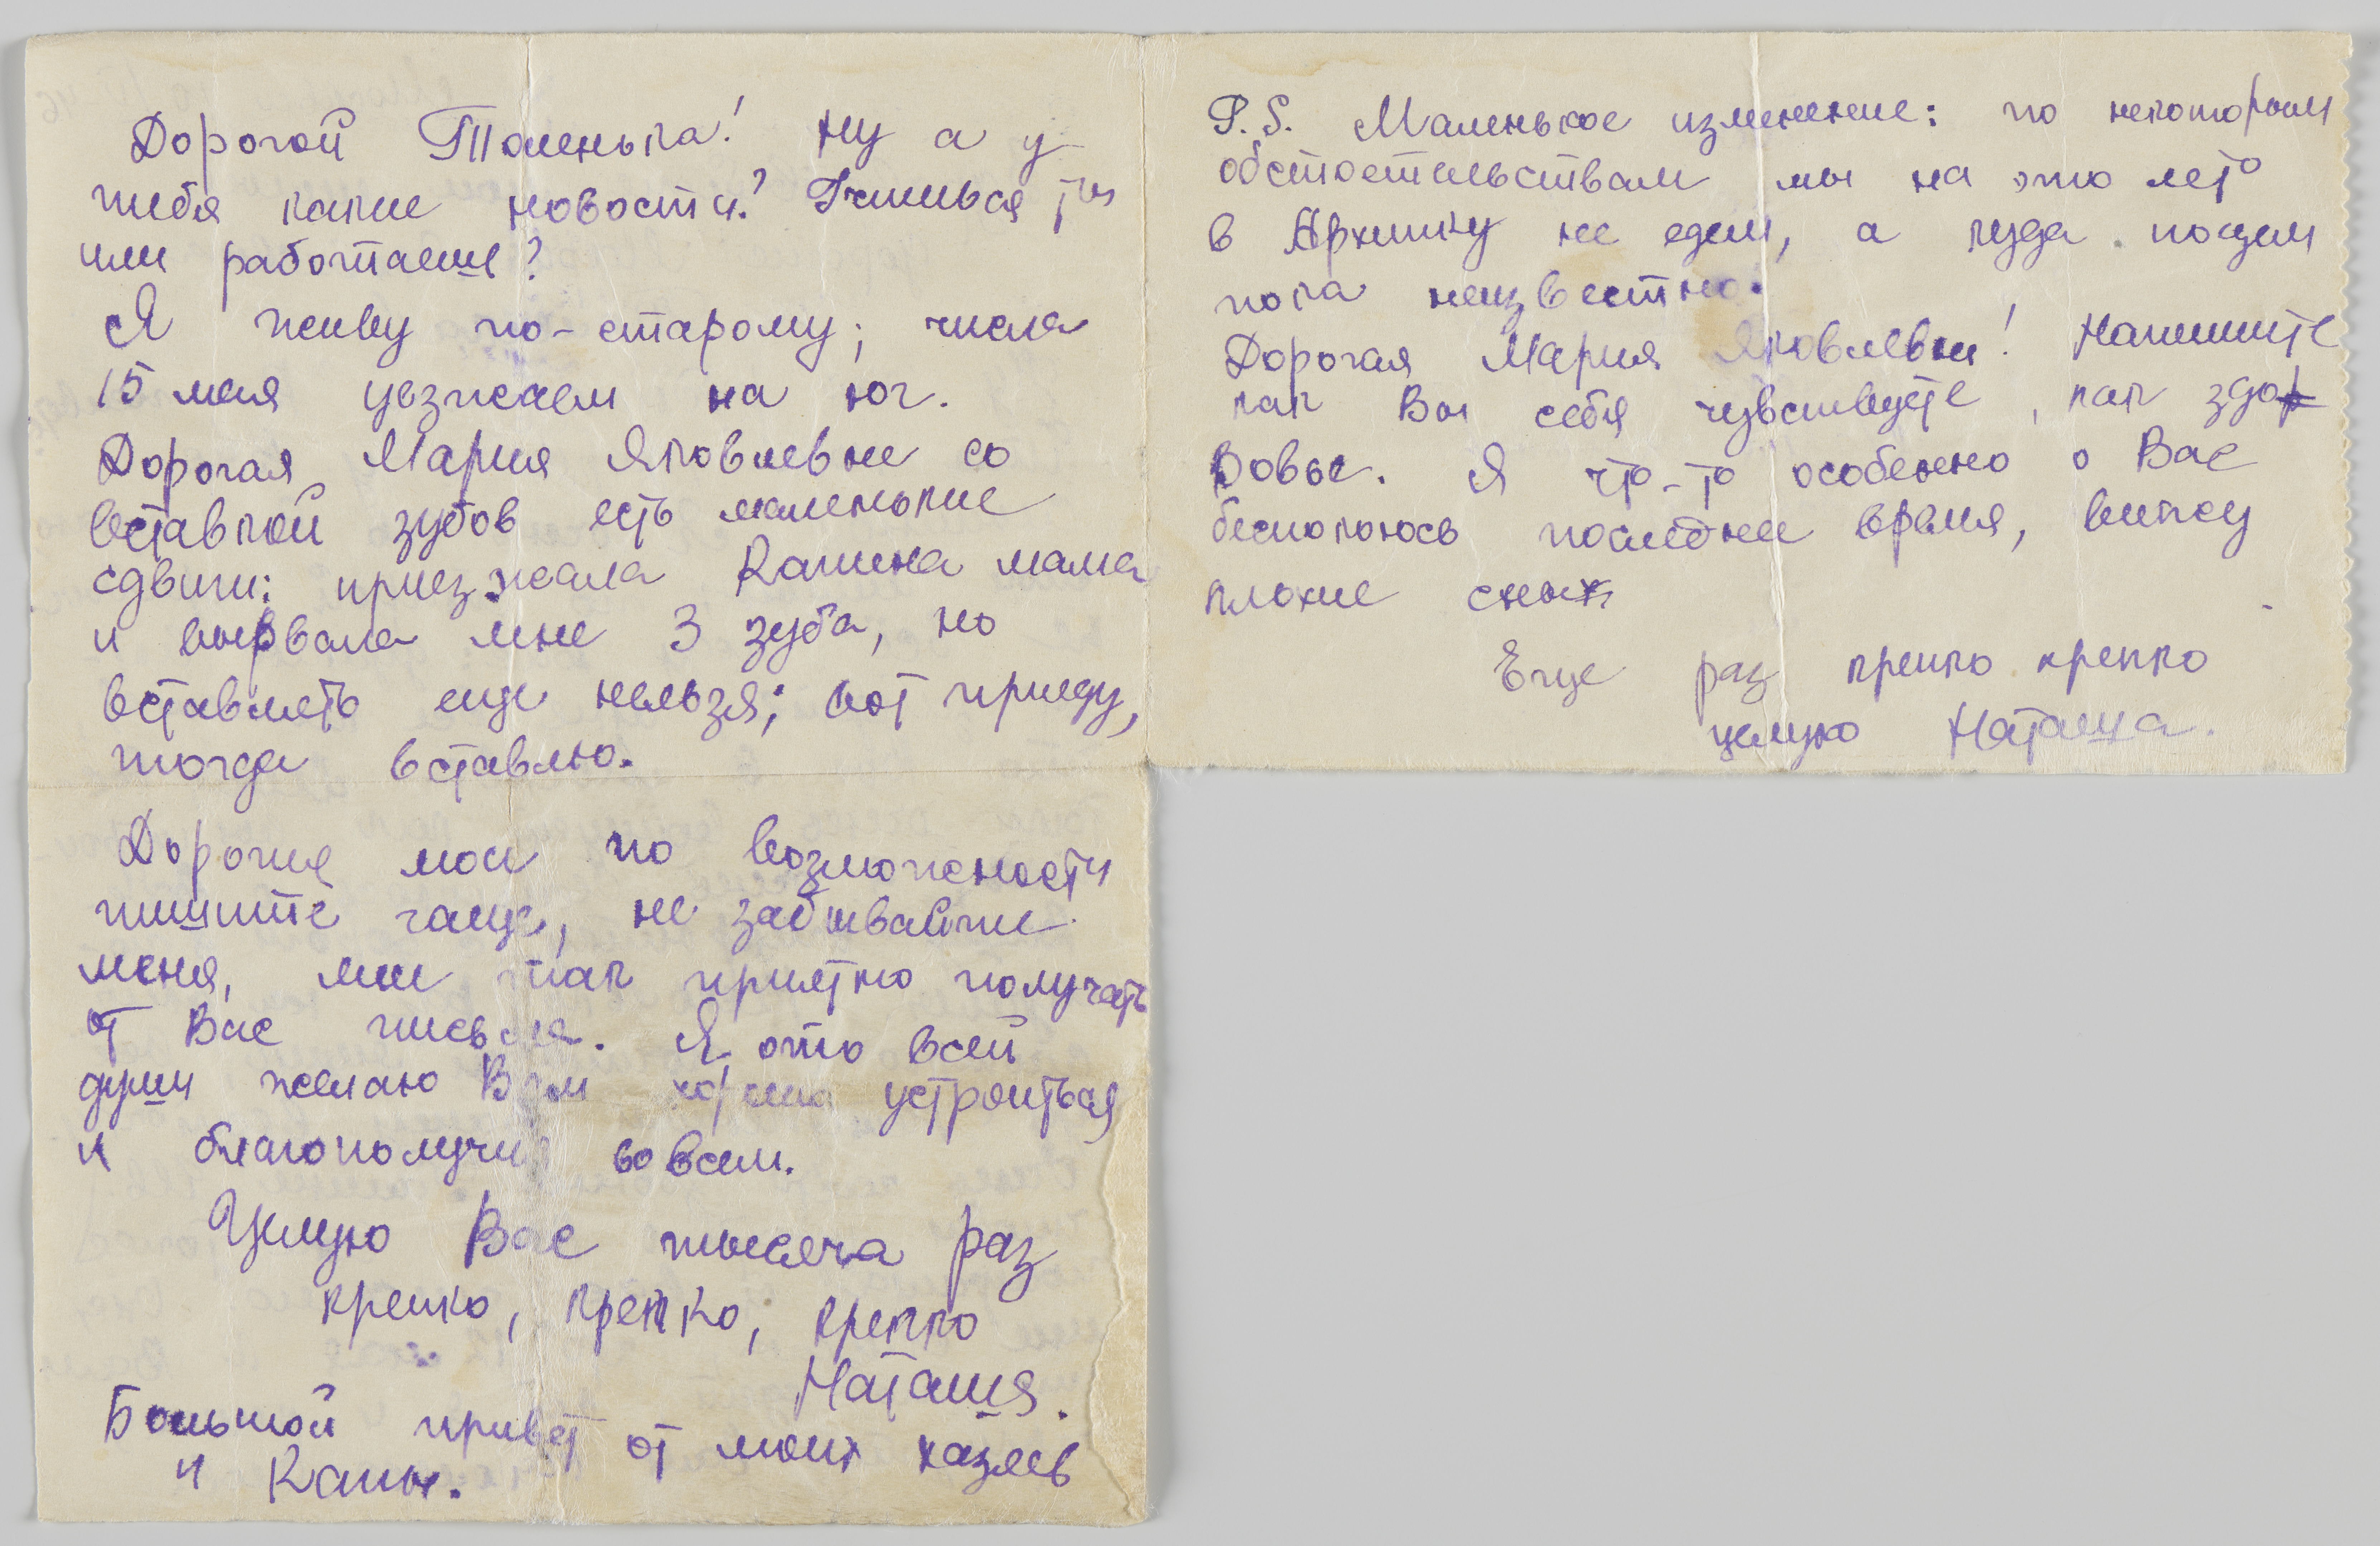 Дорогой Толенька! Ну а у
тебя какие новости? Учишься ты
или работаешь?
Я живу по-старому; числа
15 мая уезжаем на юг.
Дорогая Мария Яковлевна со
вставкой зубов есть маленькие
сдвиги: приезжала Капина мама
и вырвала мне 3 зуба, но
вставлять еще нельзя; вот приеду,
тогда вставлю.
Дорогие мои по возможности
пишите чаще, не забывайте
меня, мне так приятно получать
от Вас письма. Я ото всей
души желаю Вам хорошо устроиться
и благополучия во всем.
Целую Вас тысяча раз
крепко, крепко, крепко
Наташа.
Большой привет от моих хазяев
и Капы.
P.S. Маленькое изменение: по некоторым
обстоятельствам мы на это лето
в не едем, а куда поедем
пока неизвестно.
Дорогая Мария Яковлевна! Напишите
как Вы себя чувствуете, как здо
ровье. Я что-то особенно о Вас
беспокоюсь последнее время, вижу
плохие сны
Еще раз крепко крепко
целую Наташа.